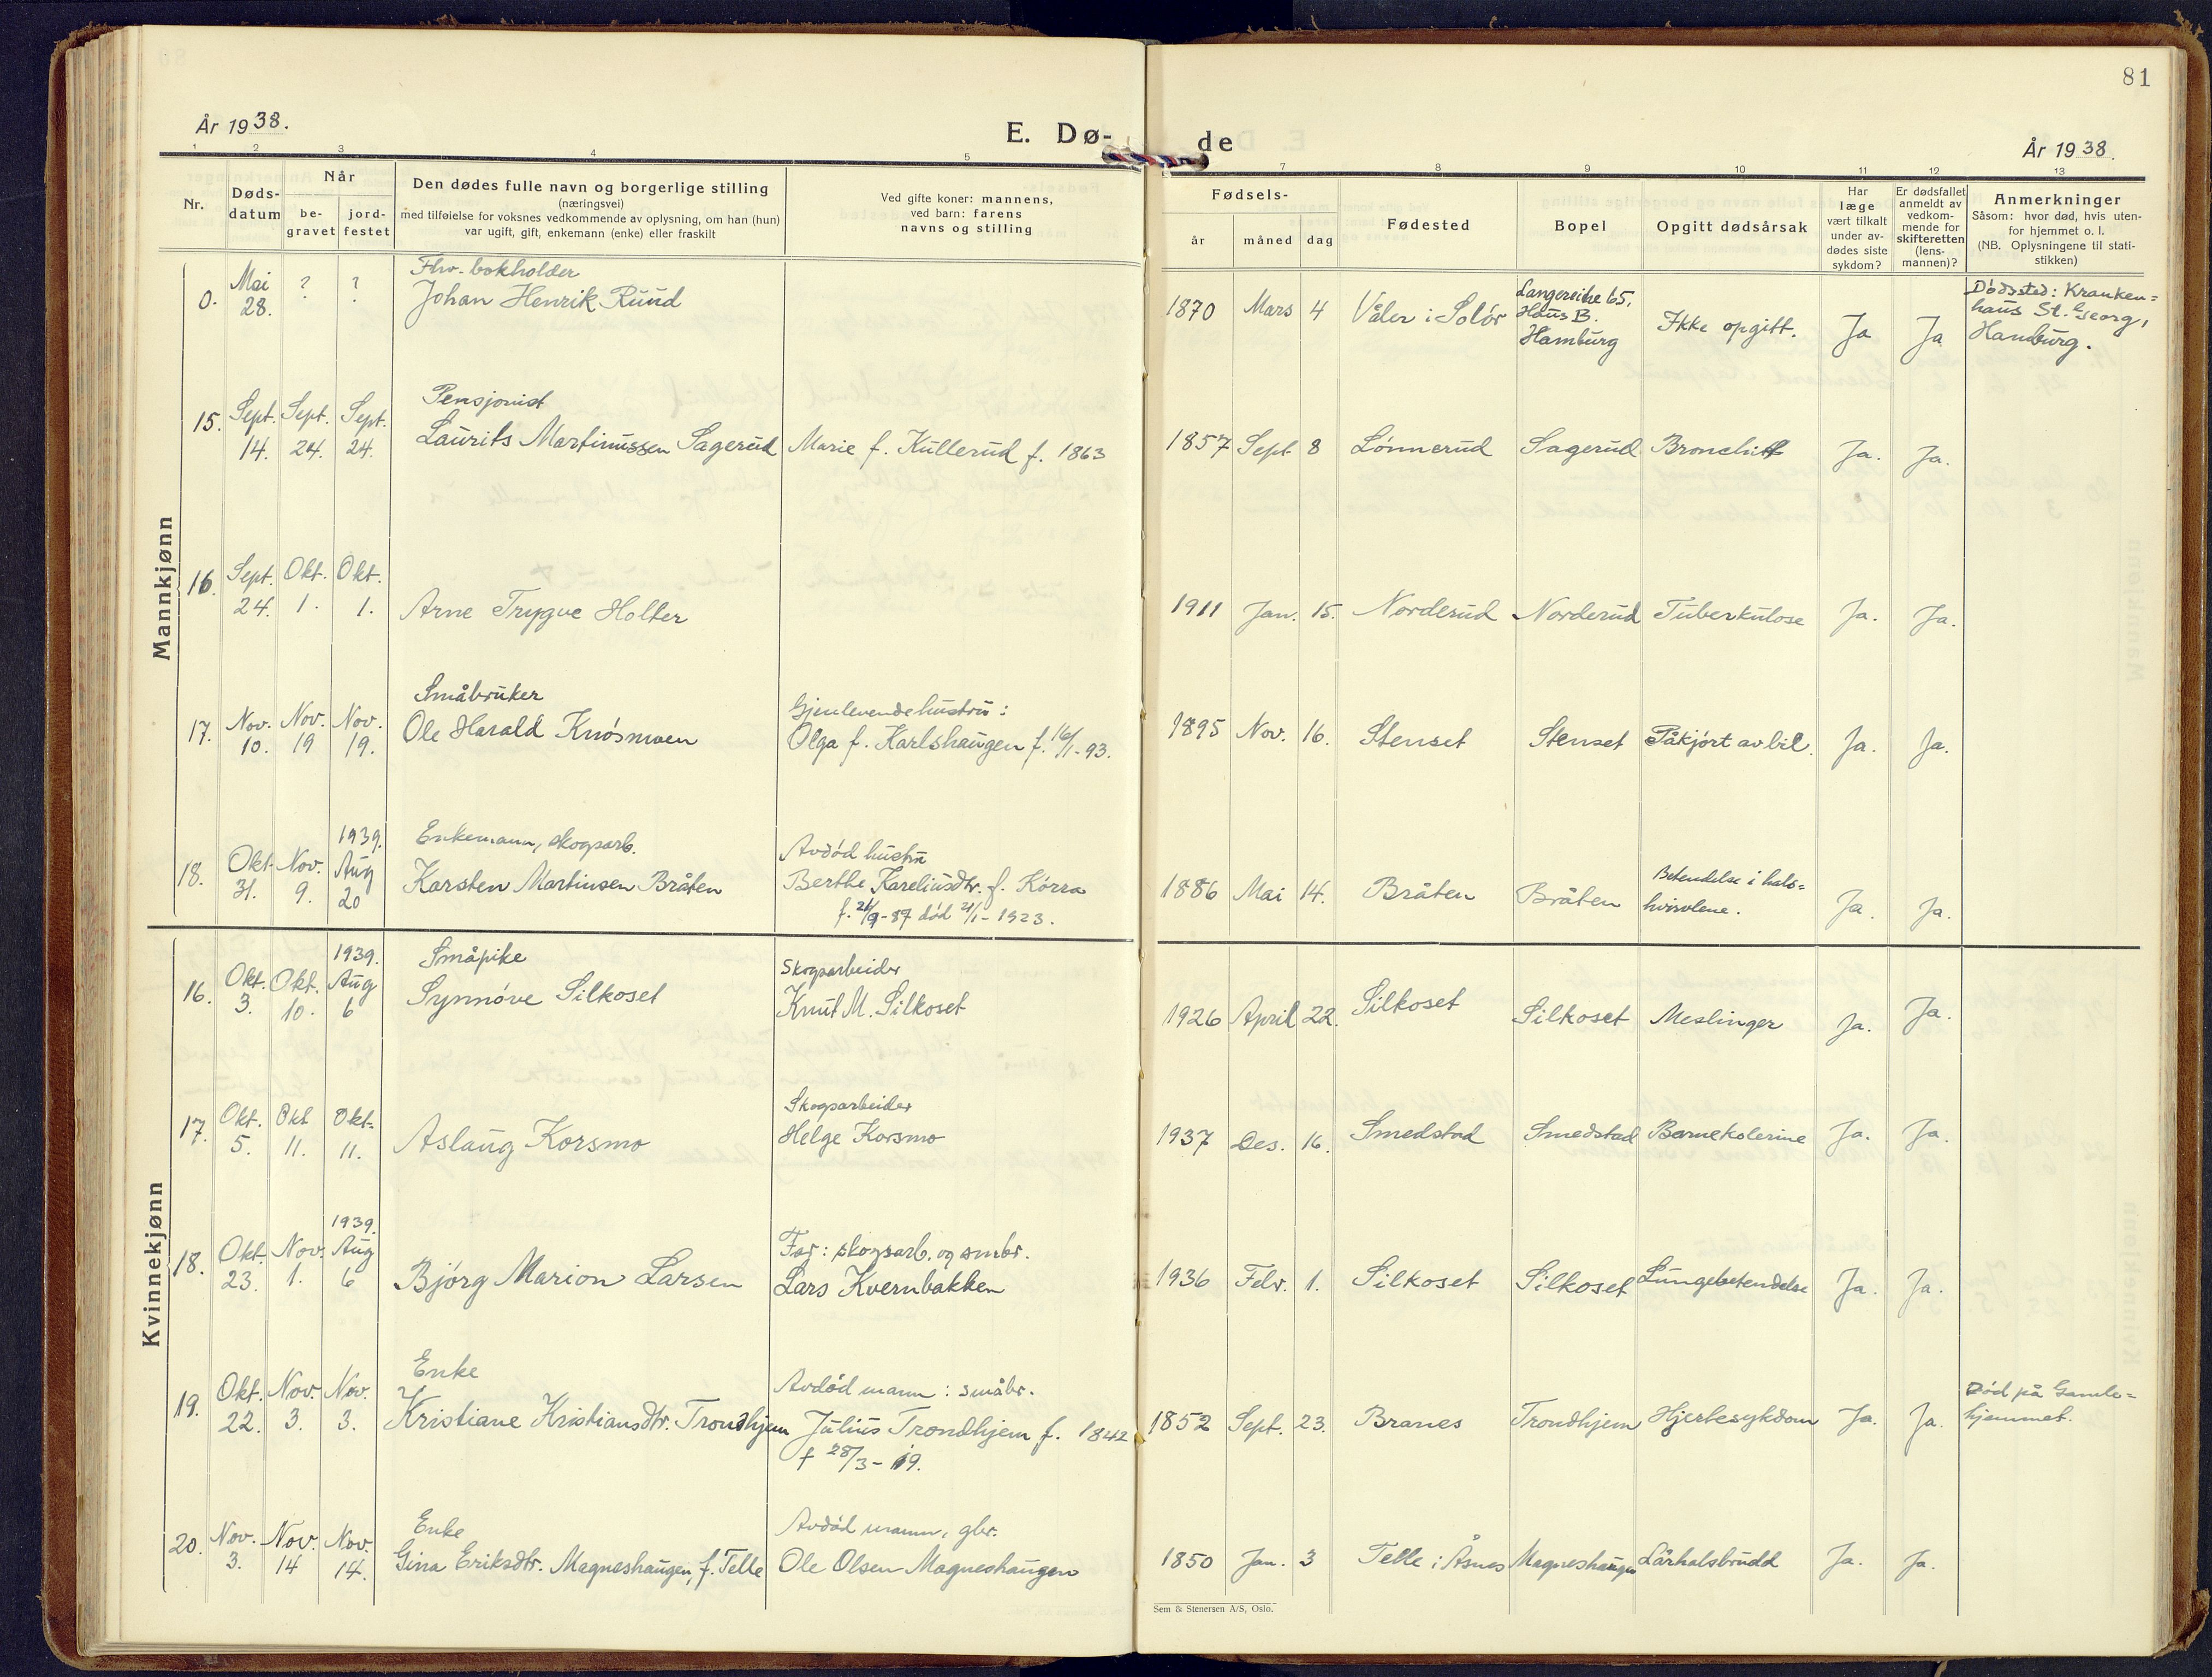 81
År 1938.
E. Dø-
de
År 1938.
1 2 3 4 5 7 8 9 10 11 12 13
Nr.
Døds-
datum
Når
be-
gravet
jord-
festet
Den dødes fulle navn og borgerlige stilling
(næringsvei)
med tilføielse for voksnes vedkommende av oplysning, om han (hun)
var ugift, gift, enkemann (enke) eller fraskilt
Ved gifte koner: mannens,
ved barn: farens
navns og stilling
Fødsels-
år måned dag
Fødested
Bopel
Opgitt dødsårsak
Har
læge
vært tilkalt
under av-
dødes siste
sykdom?
Er dødsfallet
anmeldt av
vedkom-
mende for
skifteretten
(lens-
mannen)?
Anmerkninger
Såsom: hvor død, hvis uten-
for hjemmet o. l.
(NB. Oplysningene til stati-
stikken)
Mannkjønn
0. Mai 28. ? ?
Fhv. bokholder
Johan Henrik Ruud
1870 Mars 4 Våler i Solør
Langereihe 65,
Haus B.
Hamburg
Ikke opgitt. Ja Ja
Dødssted: Kranken=
haus St. Georg,
Hamburg.
15. Sept. 14. Sept. 24. Sept. 24.
Pensjonist
Laurits Martinussen Sagerud Marie f. Kullerud f. 1863
1857 Sept 8 Lønnerud Sagerud Bronchitt Ja. Ja.
16. Sept. 24. Okt. 1. Okt. 1.
Arne Trygve Holter
1911 Jan. 15. Norderud Norderud Tuberkulose Ja. Ja.
17. Nov. 10. Nov. 19 Nov. 19.
Småbruker
Ole Harald Knøsmoen
Gjenlevende hustru:
Olga f. Karlshaugen f. 16/1-93.
1895 Nov. 16. Stenset Stenset Påkjørt av bil. Ja. Ja.
18. Okt. 31. Nov. 9. 1939. Aug 20
Enkemann, skogsarb.
Karsten Martinsen Bråten
Avdød hustru
Berthe Kareliusdtr. f. Kørra
f. 21/9-87 død 21/1-1923.
1886 Mai 14. Bråten Bråten
Betendelse i hals=
hvirvlene.
Ja. Ja.
Kvinnekjønn
16. Okt. 3. Okt. 10. 1939. Aug 6
Småpike
Synnøve Silkoset
Skogsarbeider
Knut M. Silkoset
1926 April 22. Silkoset Silkoset Meslinger Ja. Ja.
17. Okt. 5. Okt 11. Okt. 11.
Aslaug Korsmo
Skogsarbeider
Helge Korsmo
1937 Des. 16. Smedstad Smedstad Barnekolerine Ja. Ja.
18. Okt. 23. Nov. 1. 1939. Aug 6
Bjørg Marion Larsen
Far: skogsarb. og smbr.
Lars Kvernbakken
1936 Febr. 1. Silkoset Silkoset Lungebetendelse Ja. Ja.
19. Okt. 22. Nov. 3. Nov. 3.
Enke
Kristiane Kristiansdtr. Trondhjem
Avdød mann: småbr.
Julius Trondhjem f. 1842
† 28/3-19.
1852 Sept. 23. Branes Trondhjem Hjertesykdom Ja. Ja.
Død på Gamle=
hjemmet.
20. Nov. 3. Nov. 14 Nov. 14.
Enke
Gina Eriksdtr. Magneshaugen, f. Telle
Avdød mann, gbr.
Ole Olsen Magneshaugen
1850 Jan. 3 Telle i Åsnes Magneshaugen Lårhalsbrudd Ja. Ja.
Sem & Stenersen A/S, Oslo.